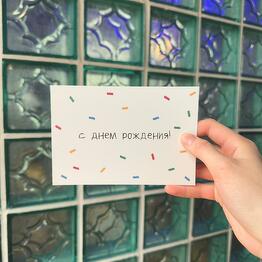 с днем рождения!